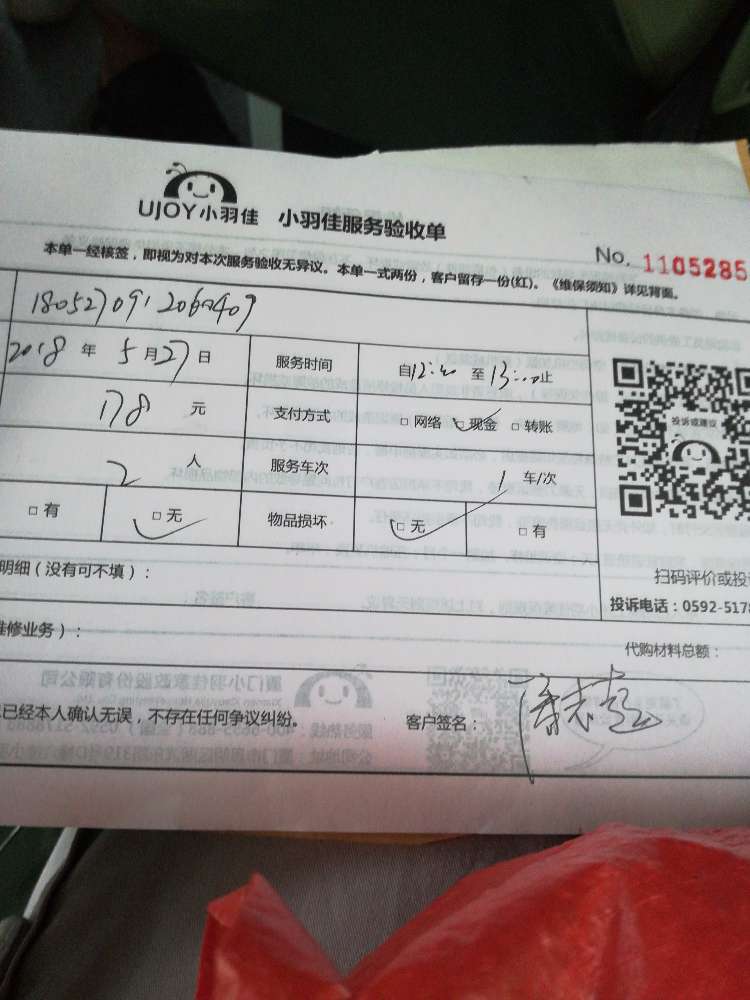 UJOY小羽佳 小羽佳服务验收单
No. 1105285
本单一经核签，即视为对本次服务验收无异议。本单一式两份，客户留存一份(红)。《维保须知》详见背面。
2018 年 5 月 27 日 服务时间 自12: 至13: 止
178 元 支付方式 □ 网络 现金 □ 转账
投诉或建议
2 人 服务车次 1 车/次
□ 有 □ 无 物品损坏 □ 无 □ 有
明细（没有可不填）：
扫码评价或投
投诉电话：0592-5178
修业务）：
代购材料总额：
已经本人确认无误，不存在任何争议纠纷。 客户签名：